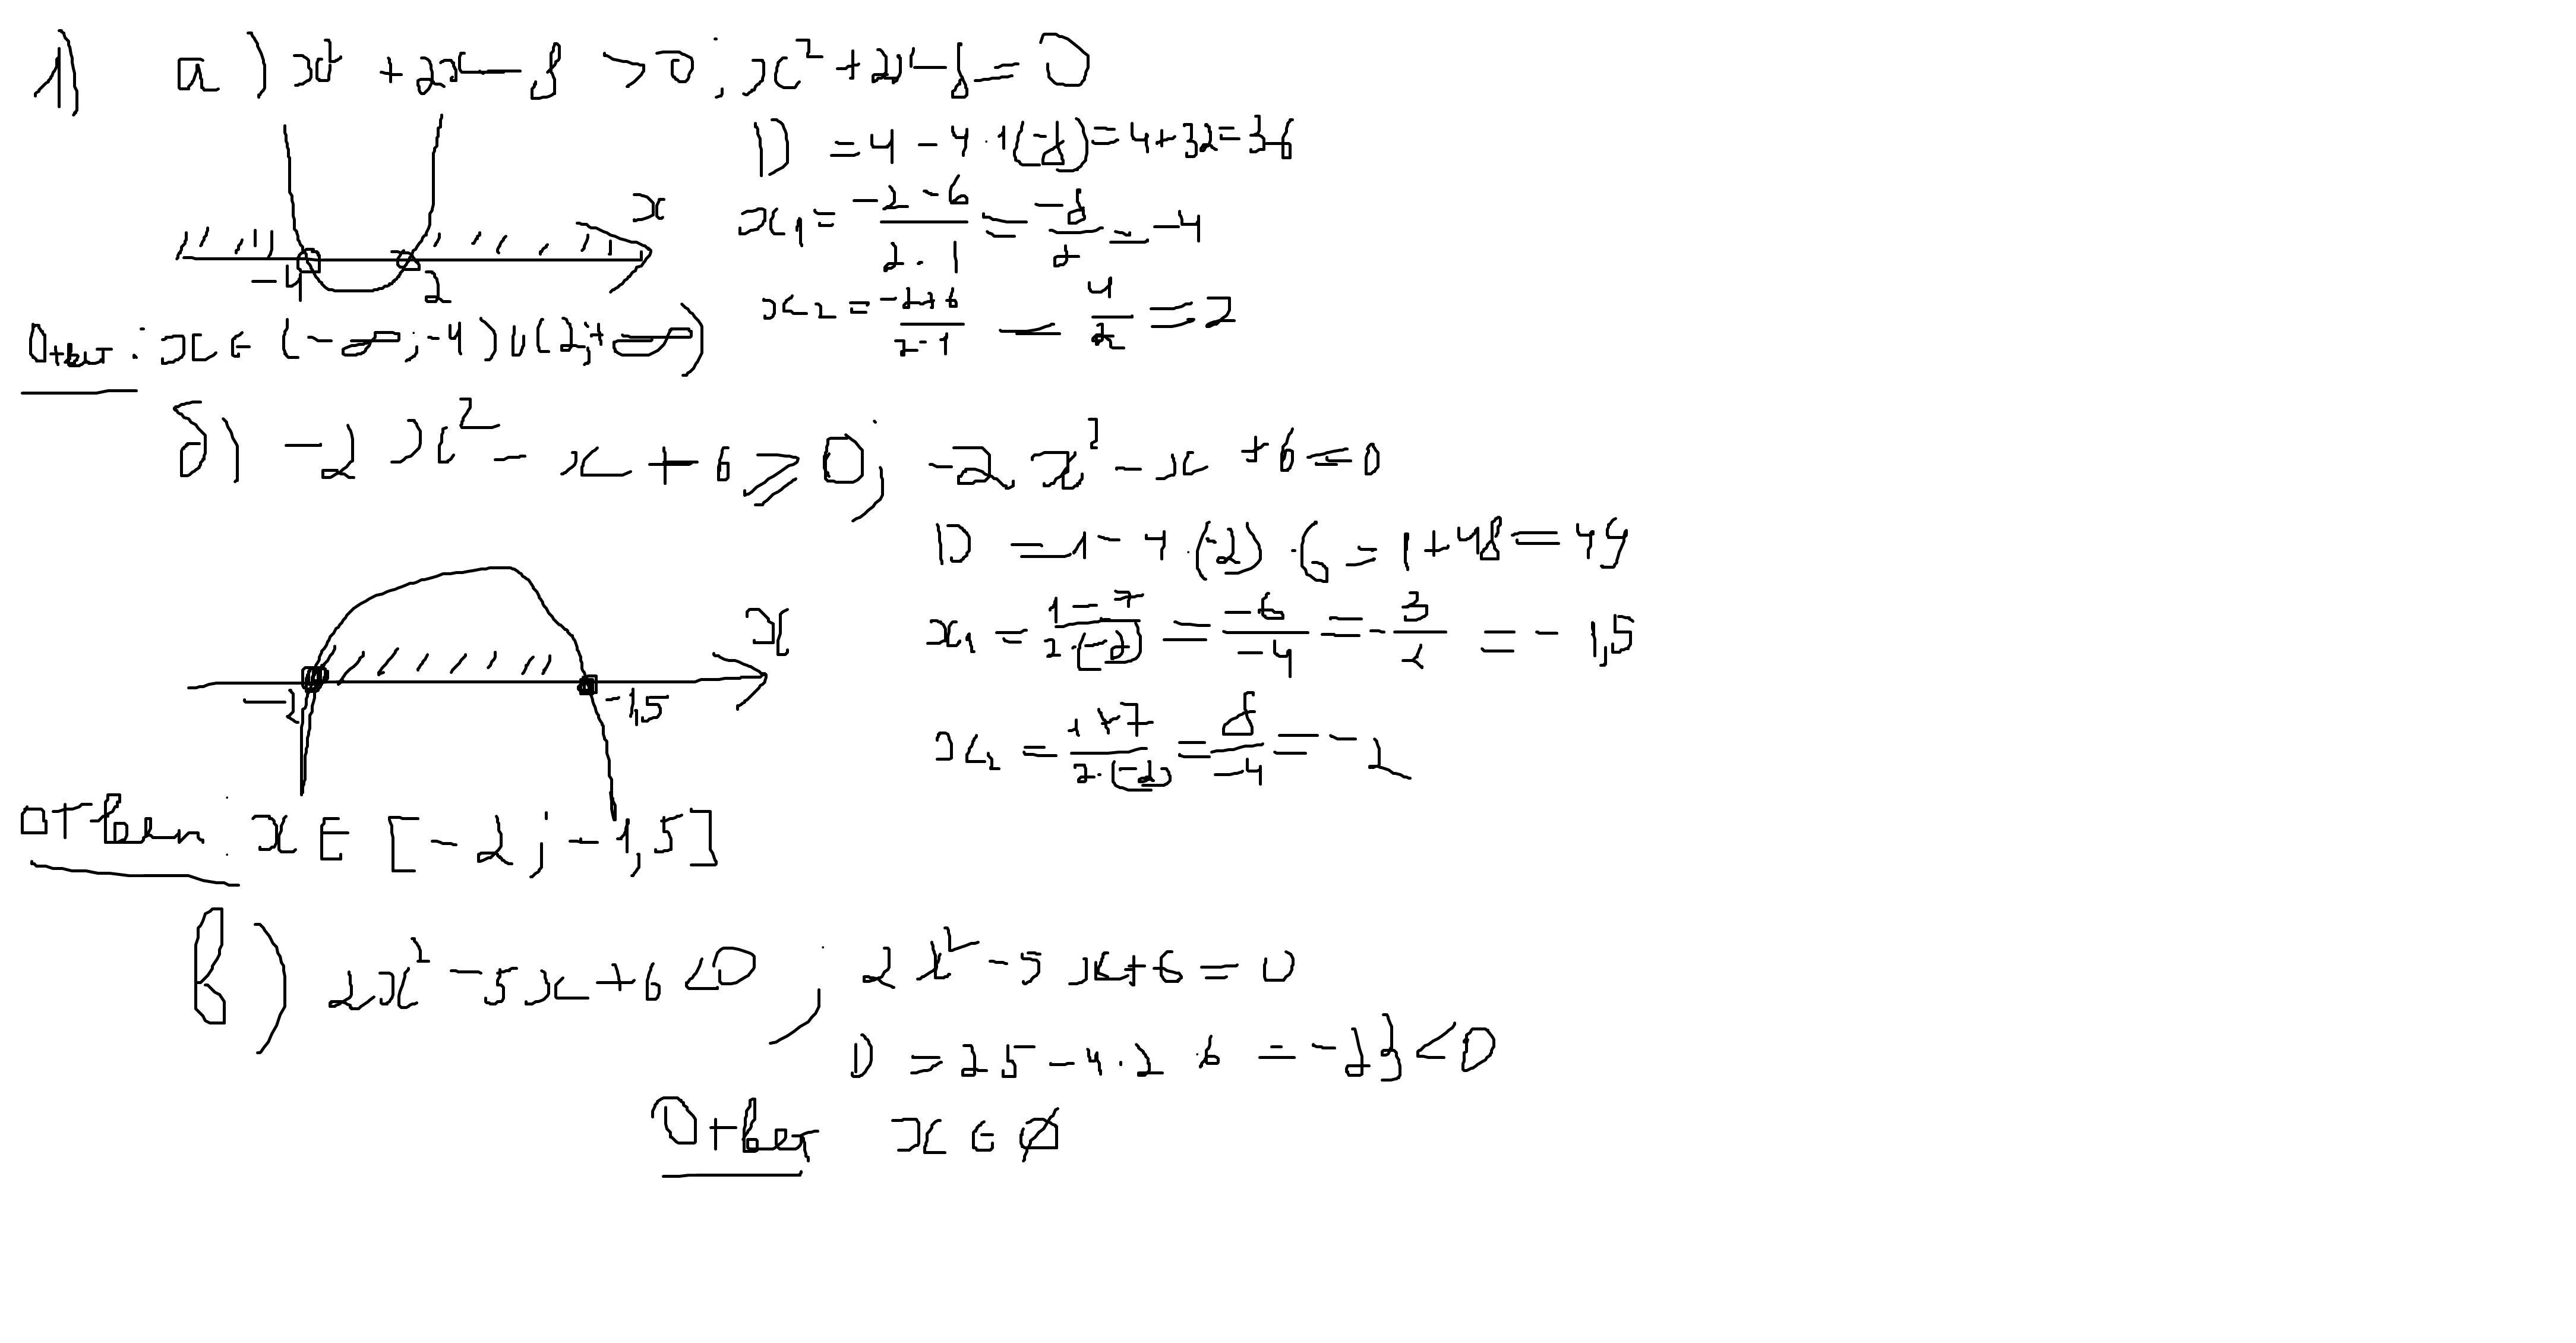 1) а) x² + 2x - 8 > 0; x² + 2x - 8 = 0
D = 4 - 4·1(-8) = 4 + 32 = 36
x
x₁ = (-2 - 6)/(2·1) = -8/2 = -4
-4 2
x₂ = (-2 + 6)/(2·1) = 4/2 = 2
Ответ: x ∈ (-∞; -4) ∪ (2; +∞)
б) -2x² - x + 6 ⩾ 0; -2x² - x + 6 = 0
D = 1 - 4·(-2)·6 = 1 + 48 = 49
x
x₁ = (1 - 7)/(2·(-2)) = -6/-4 = -3/2 = -1,5
-2 -1,5
x₂ = (1 + 7)/(2·(-2)) = 8/-4 = -2
Ответ: x ∈ [-2; -1,5]
в) 2x² - 5x + 6 < 0; 2x² - 5x + 6 = 0
D = 25 - 4·2·6 = -23 < 0
Ответ x ∈ ∅